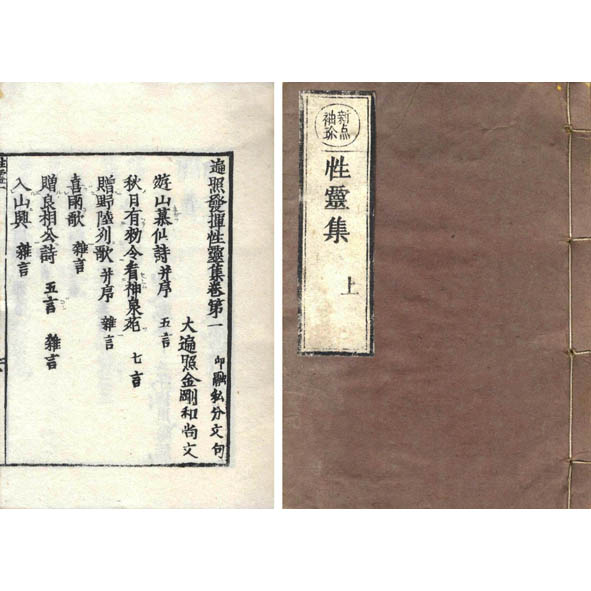 新点
袖珍
性靈集 上
遍照發揮性靈集卷第一 印融私分文句
大遍照金剛和尚文
遊山慕仙詩并序 五言
秋月有令看神泉苑 七言
贈野陸列歌并序 雜言
喜雨歌 雜言
贈良相公詩 五言 雜言
入山興 雜言